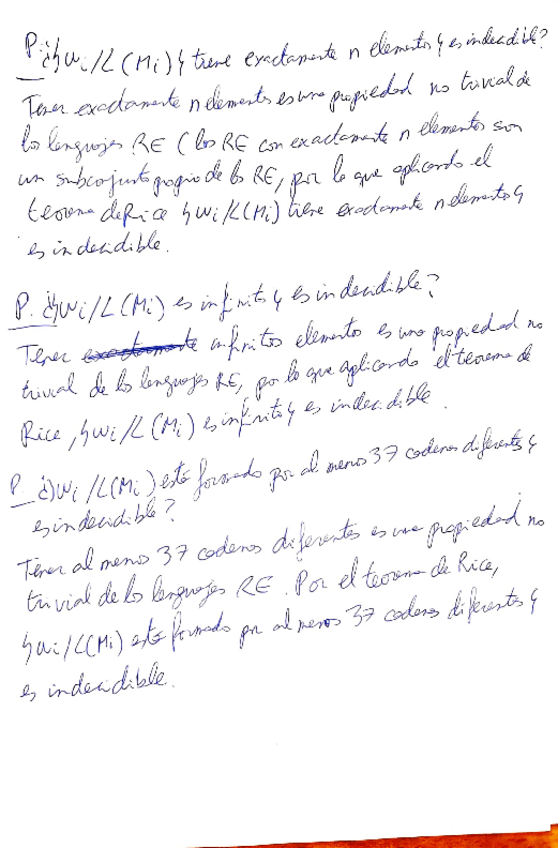 P. ¿{wi/L(Mi)} tiene exactamente n elementos} es indecidible?
Tener exactamente n elementos es una propiedad no trivial de
los lenguajes RE (los RE con exactamente n elementos son
un subconjunto propio de los RE, por lo que aplicando el
teorema de Rice {wi/L(Mi) tiene exactamente n elementos}
es indecidible.
P. ¿{wi/L(Mi) es infinito} es indecidible?
Tener infinitos elementos es una propiedad no
trivial de los lenguajes RE, por lo que aplicando el teorema de
Rice, {wi/L(Mi) es infinito} es indecidible.
P. ¿{wi/L(Mi) está formado por al menos 37 cadenas diferentes}
es indecidible?
Tener al menos 37 cadenas diferentes es una propiedad no
trivial de los lenguajes RE. Por el teorema de Rice,
{wi/L(Mi) está formado por al menos 37 cadenas diferentes}
es indecidible.